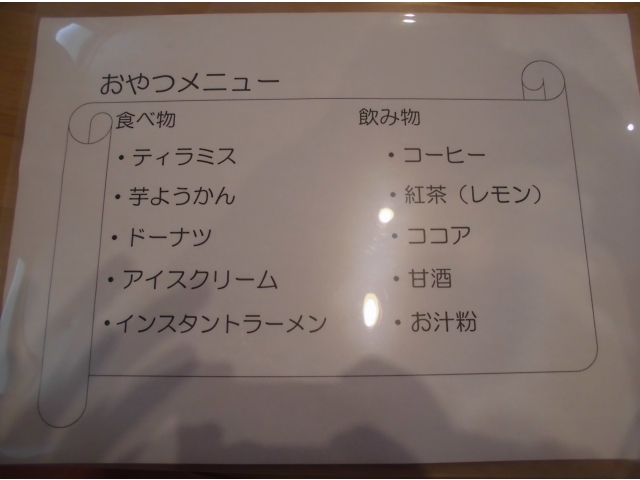 おやつメニュー
食べ物
・ティラミス
・芋ようかん
・ドーナツ
・アイスクリーム
・インスタントラーメン
飲み物
・コーヒー
・紅茶（レモン）
・ココア
・甘酒
・お汁粉